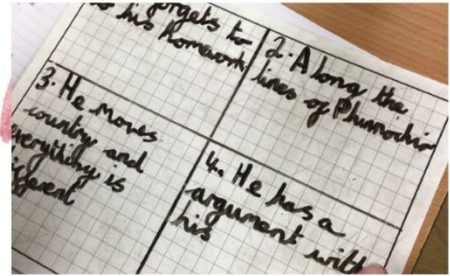 forgets to
his homework
2. Along the
lines of Phinnochio
3. He moves
country and
everything is
different
4. He has a
argument with
his